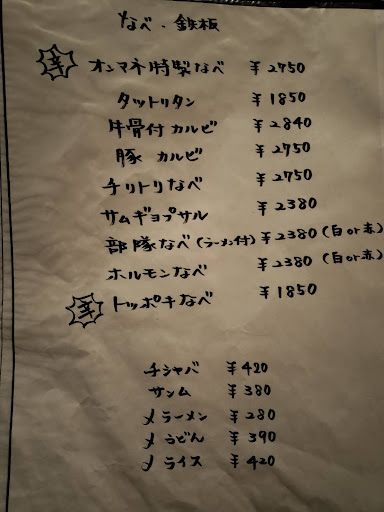 なべ・鉄板
辛 オンマネ特製なべ ¥2750
タットリタン ¥1850
牛骨付カルビ ¥2840
豚カルビ ¥2750
チリトリなべ ¥2750
サムギョプサル ¥2380
部隊なべ(ラーメン付) ¥2380(白or赤)
ホルモンなべ ¥2380(白or赤)
辛 トッポキなべ ¥1850
チシャバ ¥420
サンム ¥380
〆ラーメン ¥280
〆うどん ¥390
〆ライス ¥420